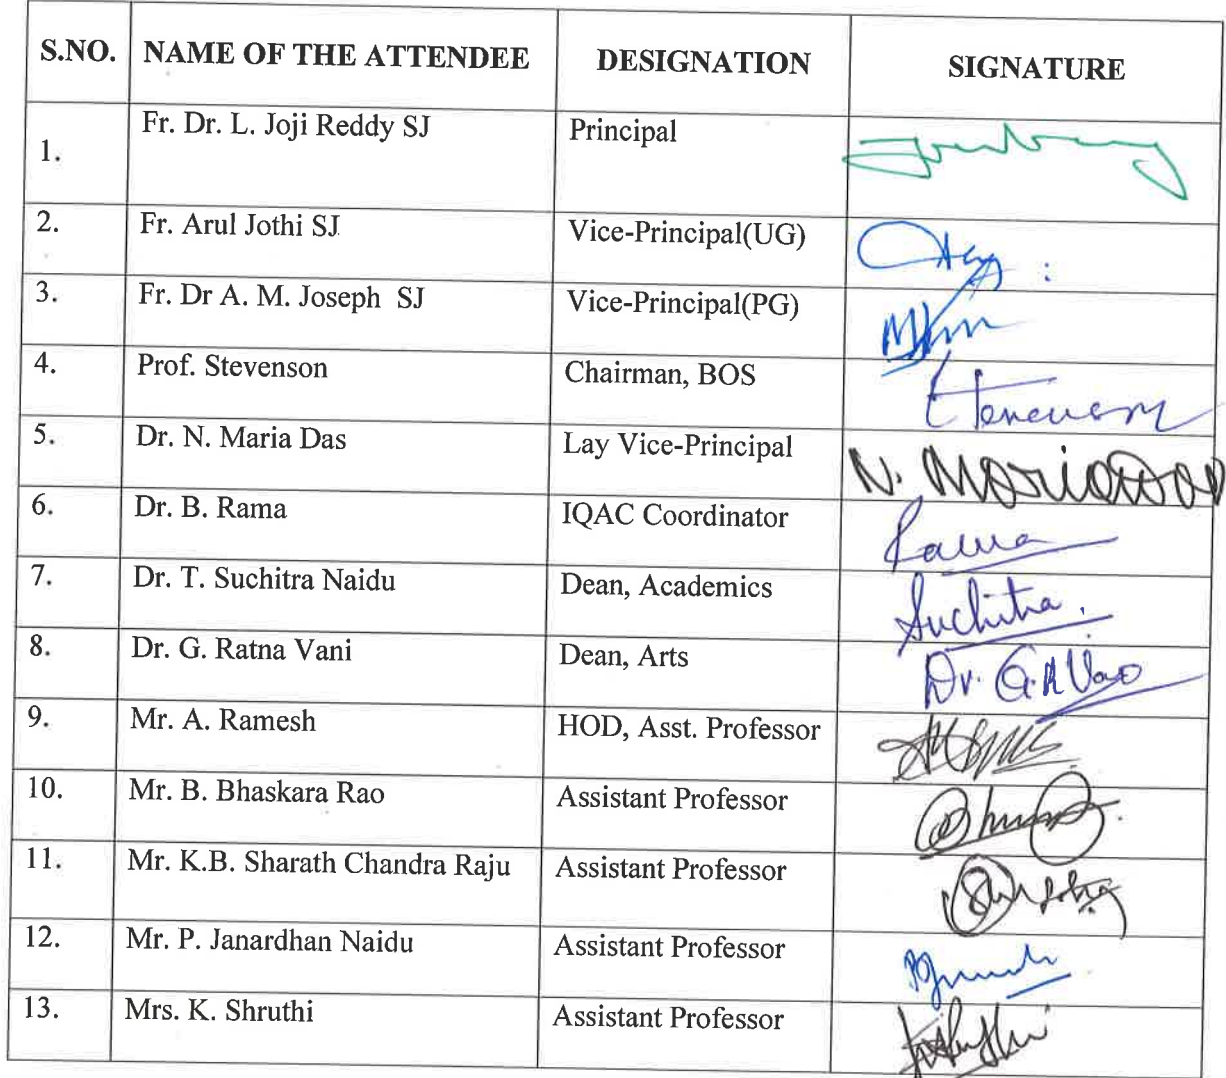 S.NO. NAME OF THE ATTENDEE DESIGNATION SIGNATURE
1. Fr. Dr. L. Joji Reddy SJ Principal
2. Fr. Arul Jothi SJ Vice-Principal(UG)
3. Fr. Dr A. M. Joseph SJ Vice-Principal(PG)
4. Prof. Stevenson Chairman, BOS
5. Dr. N. Maria Das Lay Vice-Principal N. Mariadas
6. Dr. B. Rama IQAC Coordinator Rama
7. Dr. T. Suchitra Naidu Dean, Academics Suchitra.
8. Dr. G. Ratna Vani Dean, Arts Dr. G.R
9. Mr. A. Ramesh HOD, Asst. Professor
10. Mr. B. Bhaskara Rao Assistant Professor
11. Mr. K.B. Sharath Chandra Raju Assistant Professor
12. Mr. P. Janardhan Naidu Assistant Professor
13. Mrs. K. Shruthi Assistant Professor